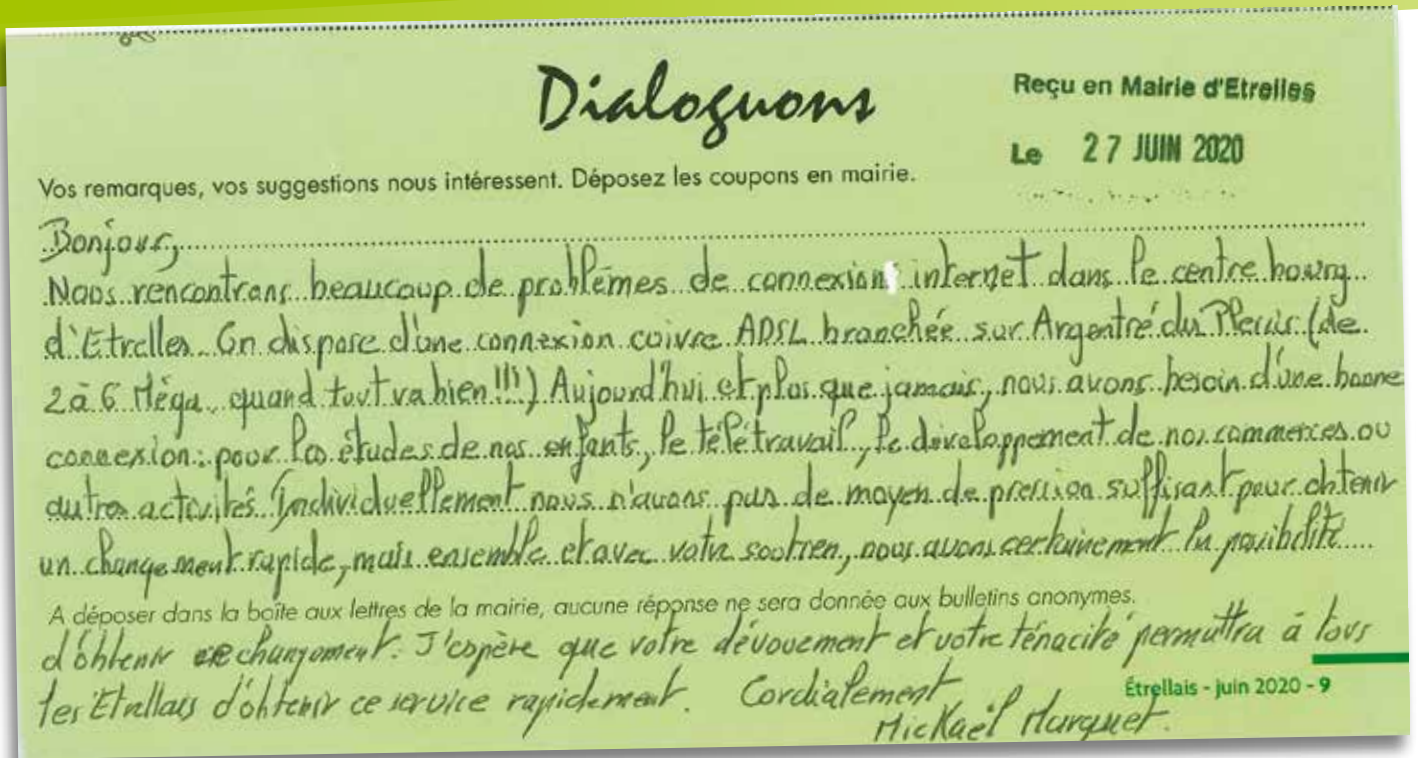 Dialoguons
Reçu en Mairie d'Etrelles
Le 27 JUIN 2020
Vos remarques, vos suggestions nous intéressent. Déposez les coupons en mairie.
Bonjour,
Nous rencontrons beaucoup de problèmes de connexion internet dans le centre bourg
d'Etrelles. On dispose d'une connexion cuivre ADSL branchée sur Argentré du Plessis (de
2 à 6 Méga, quand tout va bien!!!) Aujourd'hui et plus que jamais, nous avons besoin d'une bonne
connexion: pour les études de nos enfants, le télétravail, le développement de nos commerces ou
autres activités. Individuellement nous n'avons pas de moyen de pression suffisant pour obtenir
un changement rapide, mais ensemble et avec votre soutien, nous avons certainement la possibilité
A déposer dans la boîte aux lettres de la mairie, aucune réponse ne sera donnée aux bulletins anonymes.
d'obtenir ce changement. J'espère que votre dévouement et votre ténacité permettra à tous
les Etrellais d'obtenir ce service rapidement. Cordialement
Étrellais - juin 2020 - 9
Mickaël Marquet.